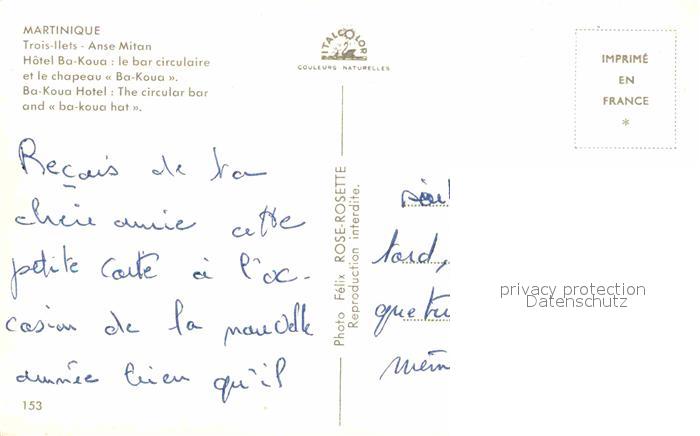 MARTINIQUE
Trois-Ilets - Anse Mitan
Hôtel Ba-Koua : le bar circulaire
et le chapeau « Ba-Koua ».
Ba-Koua Hotel : The circular bar
and « ba-koua hat ».
Reçais de ta
chère amie cette
petite carte à l'oc-
casion de la nouvelle
année bien qu'il
153
ITALCOLOR
COULEURS NATURELLES
Photo Félix ROSE-ROSETTE
Reproduction interdite.
IMPRIMÉ
EN
FRANCE
*
tard,
que tu
mêm
privacy protection
Datenschutz